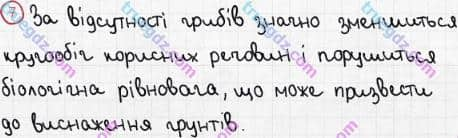 7 За відсутності грибів значно зменшиться
кругообіг корисних речовин і порушиться
біологічна рівновага, що може призвести
до виснаження грунтів.